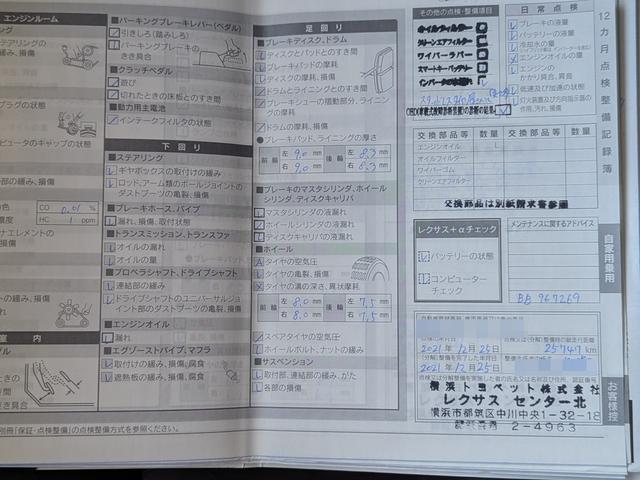 エンジンルーム
テアリングの
損傷
プラグの状態
ピュータのキャップの状態
部の緩み、損傷
CO 0.01 %
HC 1 ppm
室 内
パーキングブレーキレバー(ペダル)
引きしろ(踏みしろ)
パーキングブレーキの
きき具合
クラッチペダル
遊び
切れたときの床板とのすき間
動力用主電池
インテークフィルタの状態
下 回 り
ステアリング
ギヤボックスの取付けの緩み
ロッド、アーム類のボールジョイントの
ダストブーツの亀裂、損傷
ブレーキホース、パイプ
漏れ、損傷、取付状態
トランスミッション、トランスファ
オイルの漏れ
オイルの量
プロペラシャフト、ドライブシャフト
連結部の緩み
ドライブシャフトのユニバーサルジョ
イント部のダストブーツの亀裂、損傷
エンジンオイル
漏れ
エグゾーストパイプ、マフラ
取付けの緩み、損傷、腐食
遮熱板の緩み、損傷、腐食
別冊「保証・点検整備」の点検整備方式を参照ください。
足 回 り
ブレーキディスク、ドラム
ディスクとパッドとのすき間
ブレーキパッドの摩耗
ディスクの摩耗、損傷
ドラムとライニングとのすき間
ブレーキシューの摺動部分、ライニン
グの摩耗
ドラムの摩耗、損傷
ブレーキパッド、ライニングの厚さ
前輪 左 9.0 mm 後輪 左 8.3 mm
右 9.0 mm 右 8.3 mm
ブレーキのマスタシリンダ、ホイール
シリンダ、ディスクキャリパ
マスタシリンダの液漏れ
ホイールシリンダの液漏れ
ディスクキャリパの液漏れ
ホイール
タイヤの空気圧
タイヤの亀裂、損傷
タイヤの溝の深さ、異状摩耗
前輪 左 8.0 mm 後輪 左 7.5 mm
右 8.0 mm 右 7.5 mm
スペアタイヤの空気圧
ホイールボルト、ナットの緩み
サスペンション
取付部、連結部の緩み、がた
各部の損傷
その他の点検・整備項目
オイルフィルター
クリーンエアフィルター
ワイパーラバー
スマートキーバッテリー
OBD(車載式故障診断装置)の診断の結果
交換部品等 数量 交換部品等 数量
エンジンオイル L
オイルフィルター
ワイパーゴム
クリーンエアフィルター
交換部品は別紙請求書参照
レクサス+αチェック
バッテリーの状態
コンピューター
チェック
日 常 点 検
ブレーキの液量
バッテリーの液量
冷却水の量
エンジンオイルの量
エンジンの
かかり具合、異音
低速及び加速の状態
灯火装置及び方向指示器の
作用、汚れ、損傷
メンテナンスに関するアドバイス
BB 967269
2021年 12月 25日 25747 km
整備を完了した年月日
2021年 12月 25日
横浜トヨペット株式会社
レクサス センター北
横浜市都筑区中川中央1-32-18
2-4963
12カ月点検整備記録簿
自家用乗用
お客様控